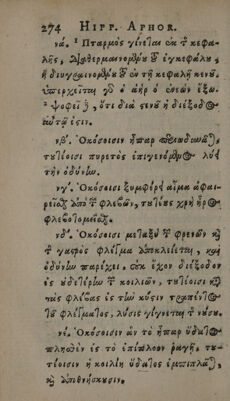 274 HIPP. APHOR.
νά. Πταρμὸς γίνεται ἐκ τ̃ κεφα-
λῆς, διαθερμαινομένου τ̃ ἐγκεφάλου,
ἢ διυγραινομένου τ̃ ἐν τῇ κεφαλῇ κενοῦ.
ὑπερχεῖται ὁ ἀὴρ ὁ ἔξω.
ψοφεῖ ὅτι διὰ στενοῦ ἡ διέξοδος
αὐτῷ ἐστιν.
νβ'. Ὁκόσοισιν ἧπαρ
τουτέοισι πυρετὸς ἐπιγενόμενος λύει
τὴν ὀδύνην.
νγ'. Ὁκόσοισι ξυμφέρει αἷμα ἀφαι-
ἀπὸ τ̃ φλεβῶν, τουτέους χρὴ ἦρος
νδ'. Ὁκόσοισι μεταξὺ τ̃ φρενῶν καὶ
τ̃ γαστρὸς φλέγμα ἀποκλείεται, καὶ
ὀδύνην παρέχει, οὐκ ἔχον διέξοδον
ἐς οὐδετέρην τ̃ κοιλιῶν, τουτέοισι κτ̃
τὰς φλέβας ἐς τὴν κύστιν
τοῦ φλέγματος, λύσις γίγνεται τ̃ νούσου.
νέ. Ὁκόσοισιν ἂν τὸ ἧπαρ ὕδατος
πλησθὲν ἐς τὸ ἐπίπλοον ῥαγῇ, του-
τέοισιν ἡ κοιλίη ὕδατος ἐμπίπλαται,
καὶ ἀποθνήσκουσιν.